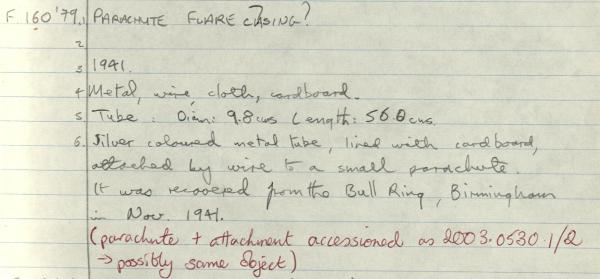 F. 160'79. 1 PARACHUTE FLARE CASING?
2
3 1941.
4 Metal, wire, cloth, cardboard.
5 Tube: Diam: 9.8cms Length: 56.0cms.
6. Silver coloured metal tube, lined with cardboard,
attached by wire to a small parachute.
It was recovered from the Bull Ring, Birmingham
in Nov. 1941.
(parachute + attachment accessioned as 2003.0530.1/2
→ possibly same object)